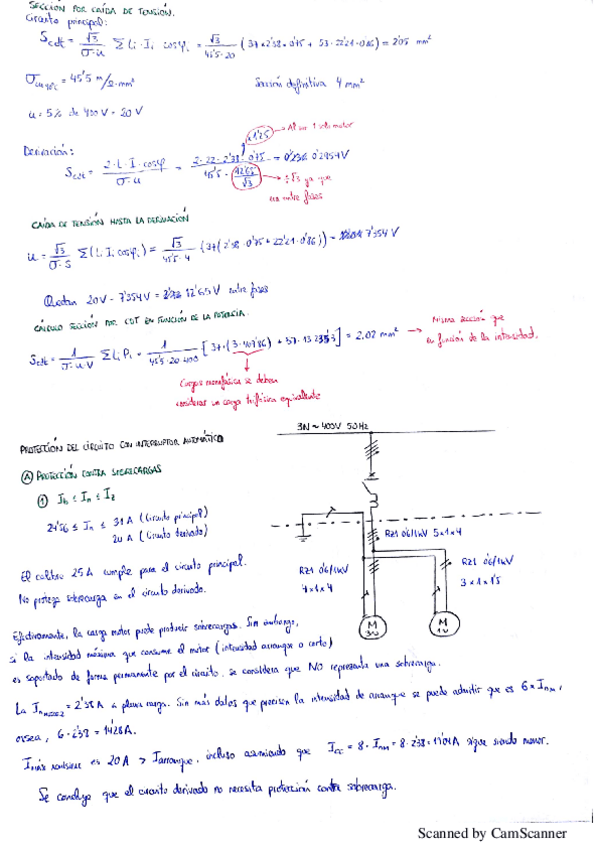 SECCIÓN POR CAÍDA DE TENSIÓN.
Circuito principal:
S cdt = √3/(σ·u) Σ Li·Ii cosφi = √3/(45'5·20) (37×2'38×0'75 + 53·22'21·0'86) = 2'05 mm²
σ Cu 90ºC = 45'5 m/Ω·mm²
Sección definitiva 4 mm²
u = 5% de 400V = 20V
×1'25 → Al ser 1 solo motor
Derivación:
S cdt = 2·L·I·cosφ/(σ·u) = 2·22·2'38·0'75/(45'5·12'65/√3) = 0'236 0'295
÷√3 ya que
es entre fases
CAÍDA DE TENSIÓN HASTA LA DERIVACIÓN
u = √3/(σ·S) Σ(Li Ii cosφi) = √3/(45'5·4) (37(2'38·0'75 + 22'21·0'86)) = 7'354 V
Quedan 20V - 7'354V = 12'65V entre fases
CÁLCULO SECCIÓN POR CDT EN FUNCIÓN DE LA POTENCIA.
S cdt = 1/(σ·u·V) Σ Li Pi = 1/(45'5·20·400) [37·(3·407'86) + 53·13235'3] = 2.02 mm² → Misma sección que
en función de la intensidad.
Cargas monofásicas se deben
considerar un carga trifásica equivalente
PROTECCIÓN DEL CIRCUITO CON INTERRUPTOR AUTOMÁTICO
3N ~ 400V 50Hz
Ⓐ PROTECCIÓN CONTRA SOBRECARGAS
① Ib ≤ In ≤ Iz
24'56 ≤ In ≤ 31 A (Circuito principal)
20 A (Circuito derivado)
RZ1 0'6/1kV 5x1x4
RZ1 0'6/1kV
4x1x4
RZ1 0'6/1kV
3x1x1'5
M
3~
M
1~
El calibre 25A cumple para el circuito principal.
No protege sobrecarga en el circuito derivado.
Efectivamente, la carga motor puede producir sobrecargas. Sin embargo,
si la intensidad máxima que consume el motor (intensidad arranque o corto)
es soportado de forma permanente por el circuito, se considera que NO representa una sobrecarga.
La In = 2'38A a plena carga. Sin más datos que precisen la intensidad de arranque se puede admitir que es 6×Inm,
osea, 6·2'38 = 14'28A.
es 20A > Iarranque, incluso asumiendo que Icc = 8·Inm = 8·2'38 = 19'04A sigue siendo menor.
Se concluye que el circuito derivado no necesita protección contra sobrecarga.
Scanned by CamScanner